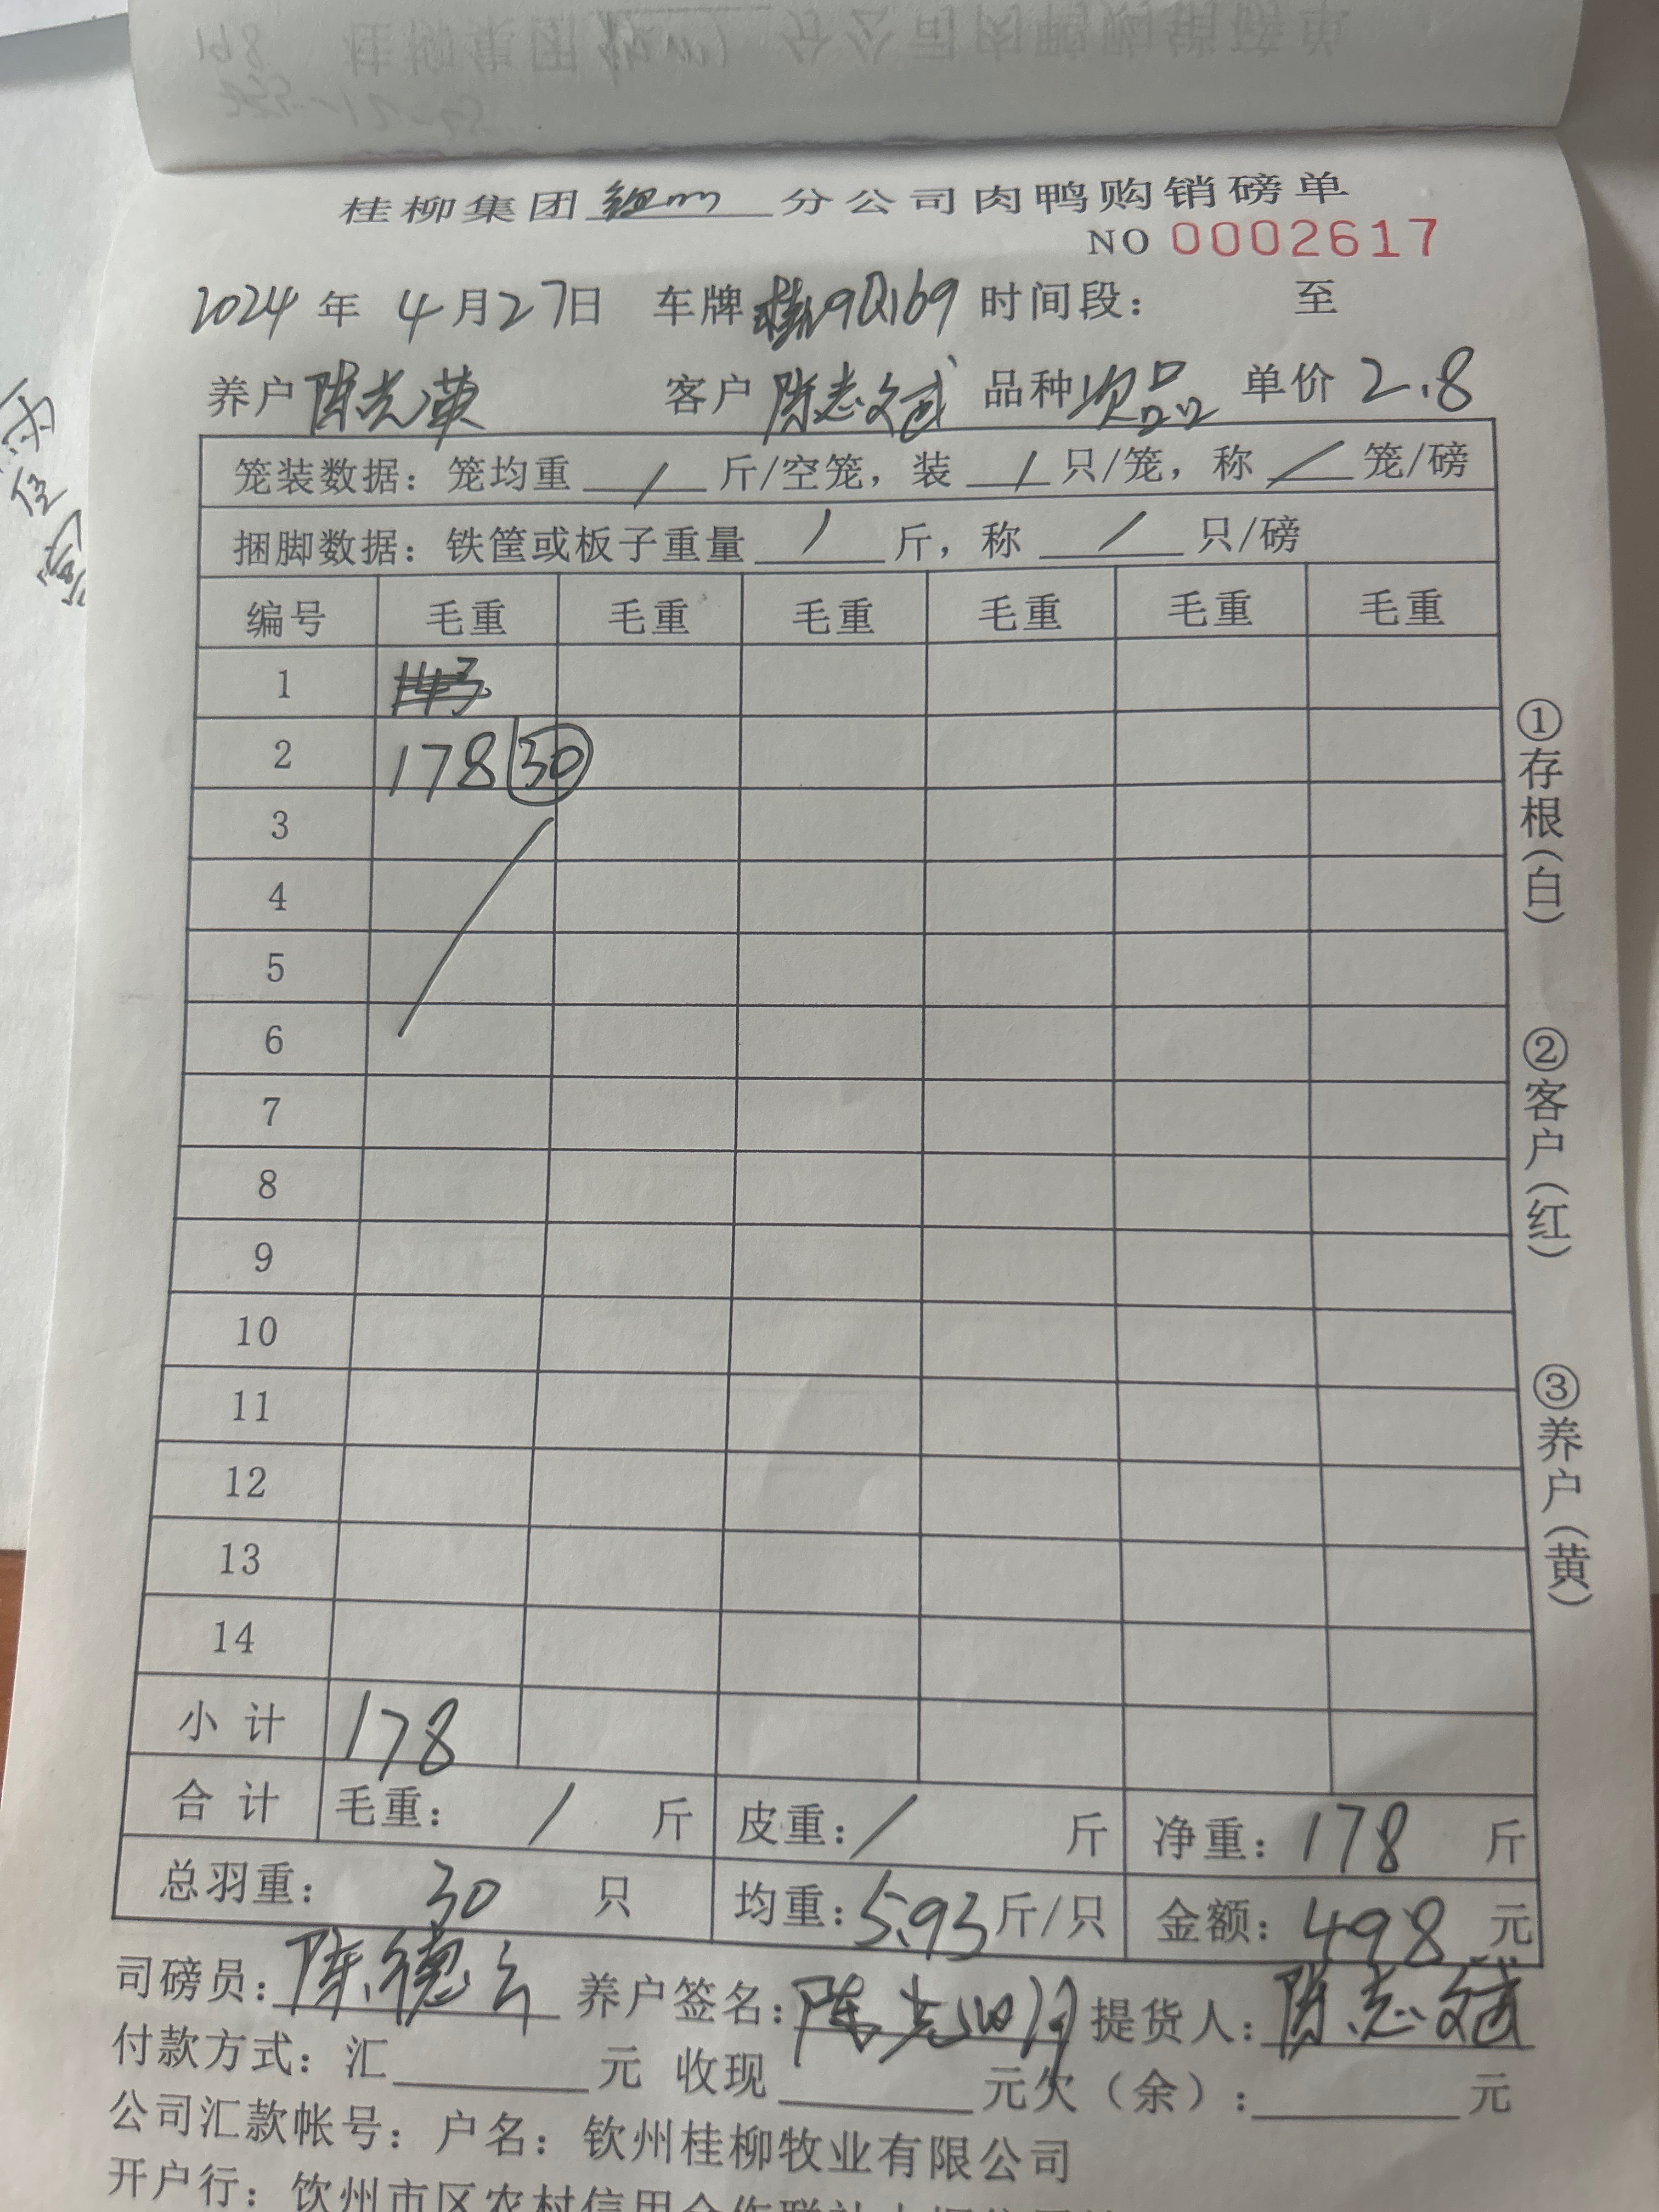 桂柳集团 钦州 分公司肉鸭购销磅单
NO 0002617
2024 年 4 月 27 日 车牌 桂N9Q169 时间段： 至
养户 陈光英 客户 陈志斌 品种 次品 单价 2.8
笼装数据：笼均重 / 斤/空笼，装 / 只/笼，称 / 笼/磅
捆脚数据：铁筐或板子重量 / 斤，称 / 只/磅
编号 毛重 毛重 毛重 毛重 毛重 毛重
1
2 178 30
3
4
5
6
7
8
9
10
11
12
13
14
小计 178
合计 毛重： / 斤 皮重： / 斤 净重：178 斤
总羽重： 30 只 均重：5.93 斤/只 金额：498 元
司磅员：陈德云 养户签名：陈光明 提货人：陈志斌
付款方式：汇 元 收现 元欠（余）： 元
公司汇款帐号：户名：钦州桂柳牧业有限公司
开户行：钦州市区农村信用合作联社
①存根（白）
②客户（红）
③养户（黄）